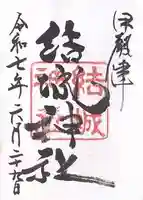 伊殿津
結城神社
結城神社
令和七年六月二十九日